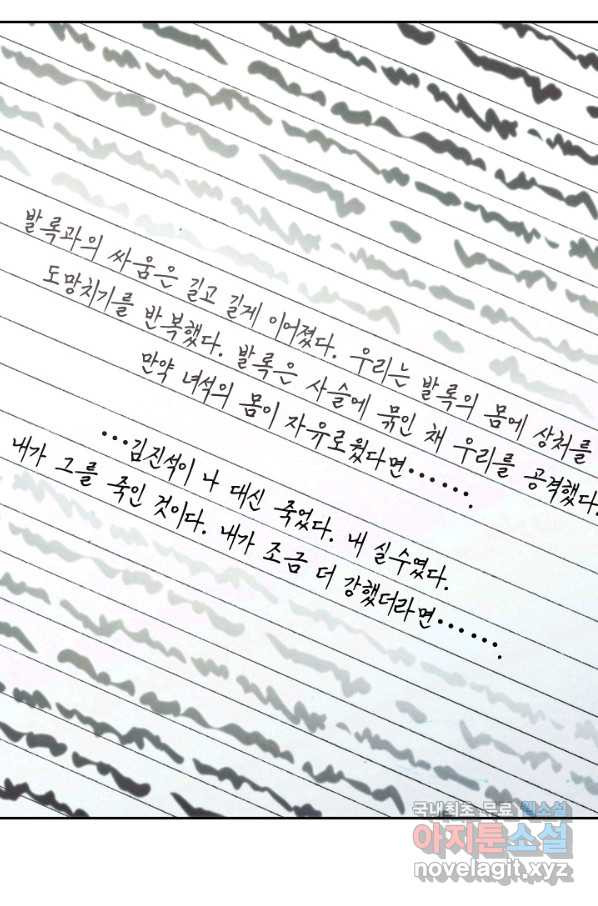 발록과의 싸움은 길고 길게 이어졌다. 우리는 발록의 몸에 상처를
도망치기를 반복했다. 발록은 사슬에 묶인 채 우리를 공격했다.
만약 녀석의 몸이 자유로웠다면······.
···김진석이 나 대신 죽었다. 내 실수였다.
내가 그를 죽인 것이다. 내가 조금 더 강했더라면······.
국내최초 무료 웹소설
아지툰소설
novelagit.xyz